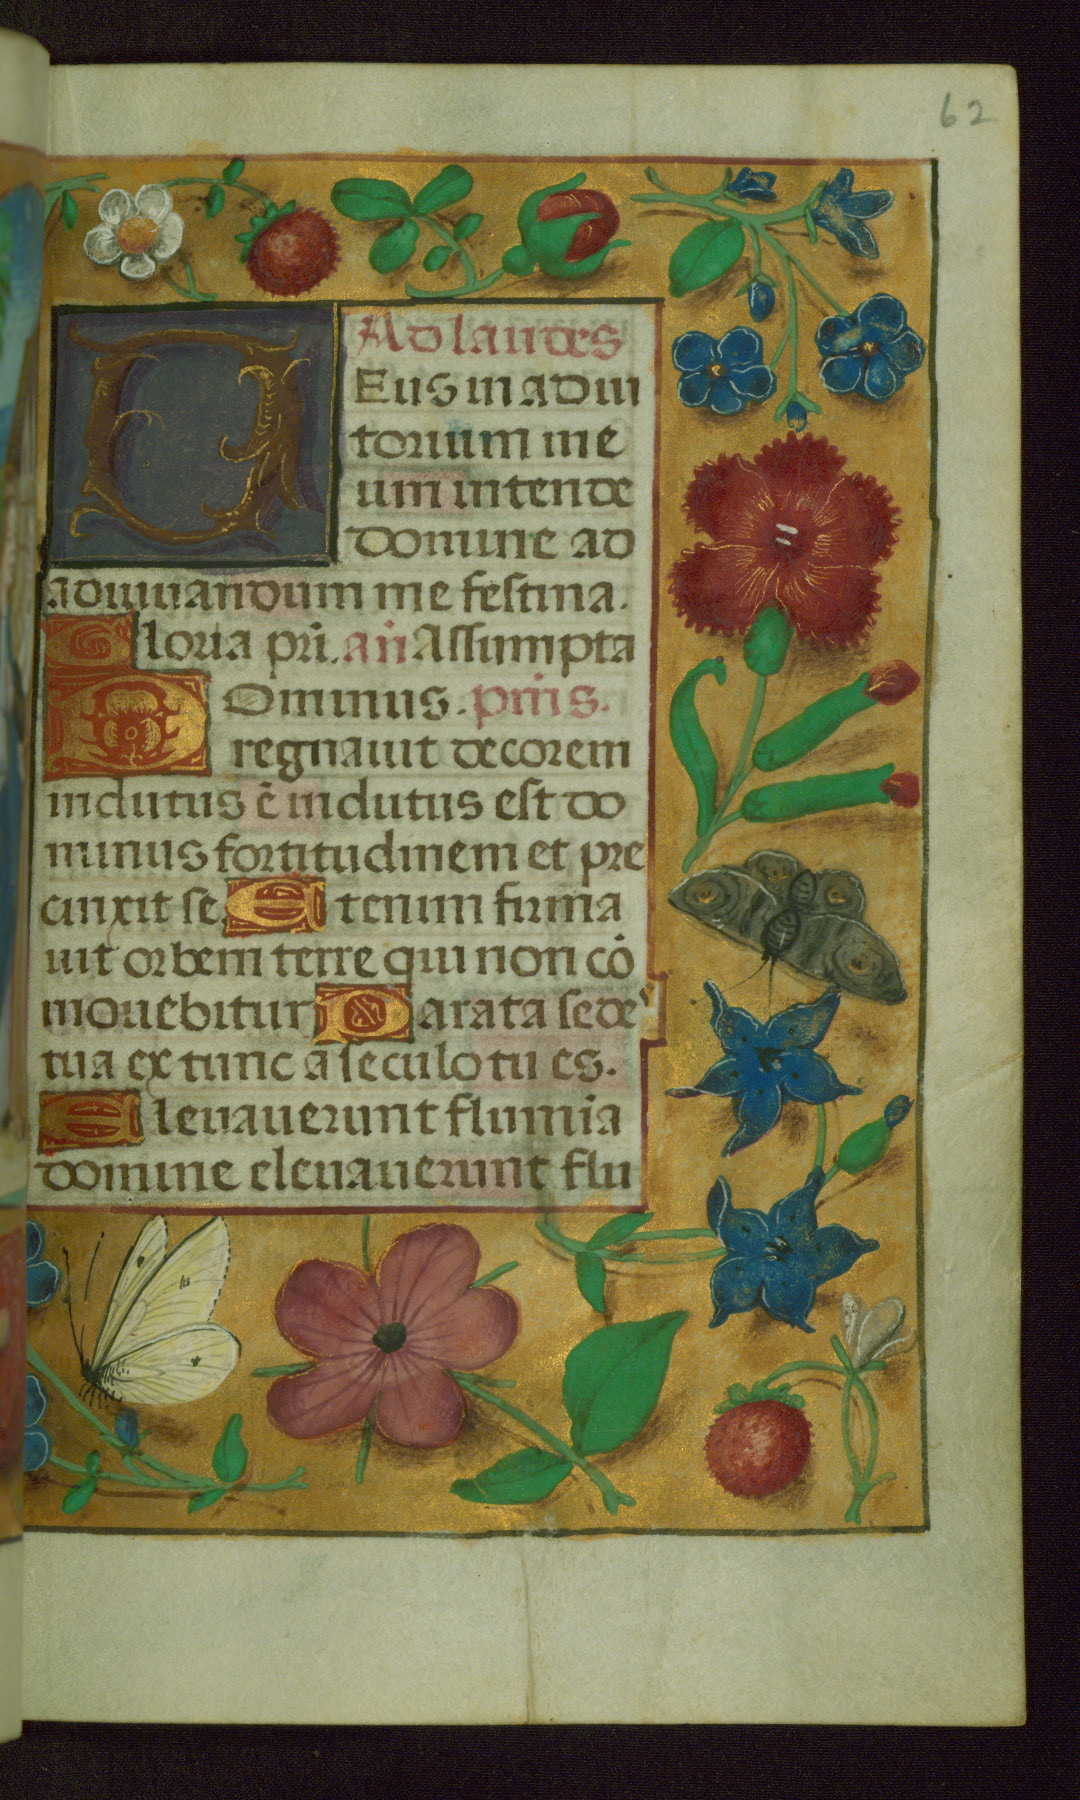 62
Ad laudes
Deus in adiu
torium me
um intende
domine ad
adiuuandum me festina.
Gloria pri. an Assumpta
Dominus. pm̄s.
regnauit decorem
indutus ē indutus est do
minus fortitudinem et pre
cinxit se Etenim firma
uit orbem terre qui non cō
mouebitur Parata sedes
tua ex tunc a seculo tu es.
Eleuauerunt flumīa
domine eleuauerunt flu